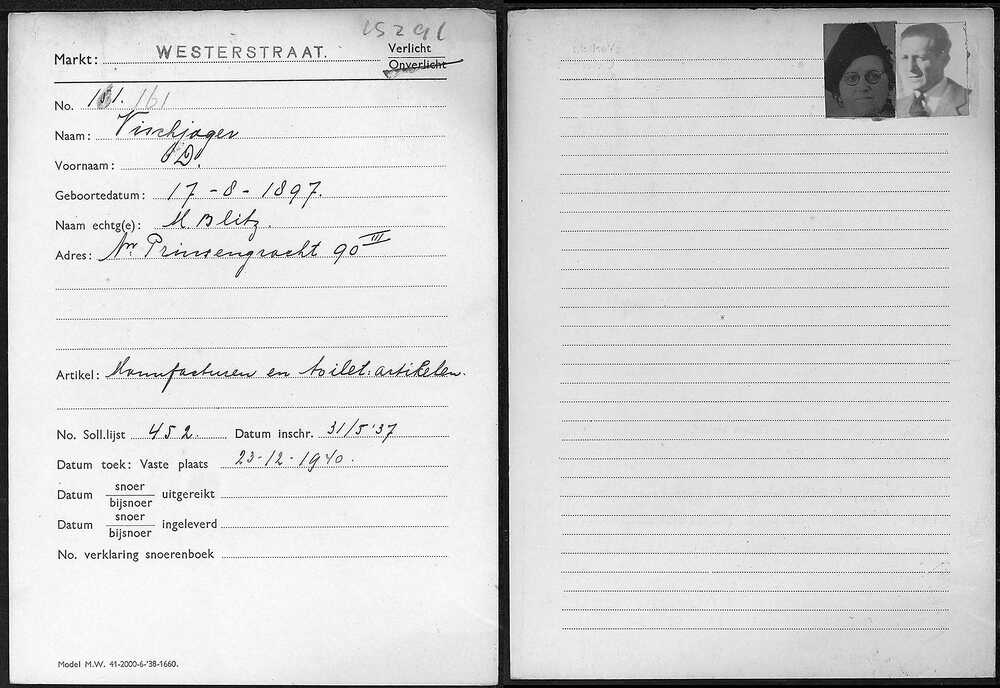 15291
Markt: WESTERSTRAAT. Verlicht
Onverlicht
No. 161. 161
Naam: Vischjager
Voornaam: D.
Geboortedatum: 17-8-1897.
Naam echtg(e): M. Blitz.
Adres: Nw Prinsengracht 90 III
Artikel: Manufacturen en toilet:artikelen.
No. Soll.lijst 452. Datum inschr. 31/5'37
Datum toek: Vaste plaats 23-12-1940.
Datum snoer/bijsnoer uitgereikt
Datum snoer/bijsnoer ingeleverd
No. verklaring snoerenboek
Model M.W. 41-2000-6-'38-1660.